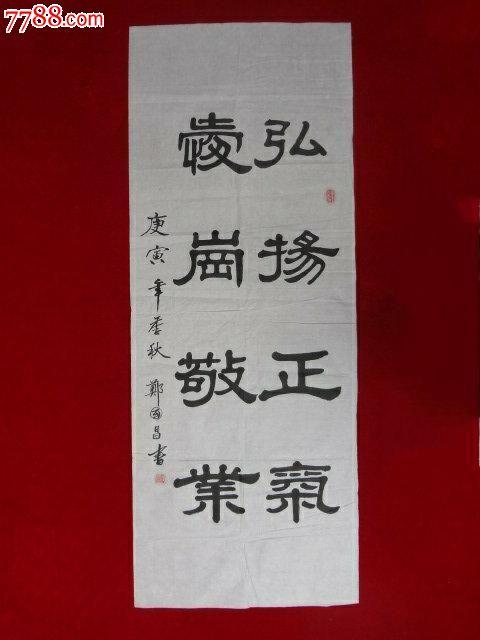 7788.com
弘揚正氣
愛崗敬業
庚寅年季秋 鄭國昌書